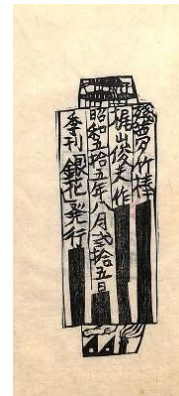 梶山俊夫作
昭和五拾五年八月弐拾五日
季刊銀花発行